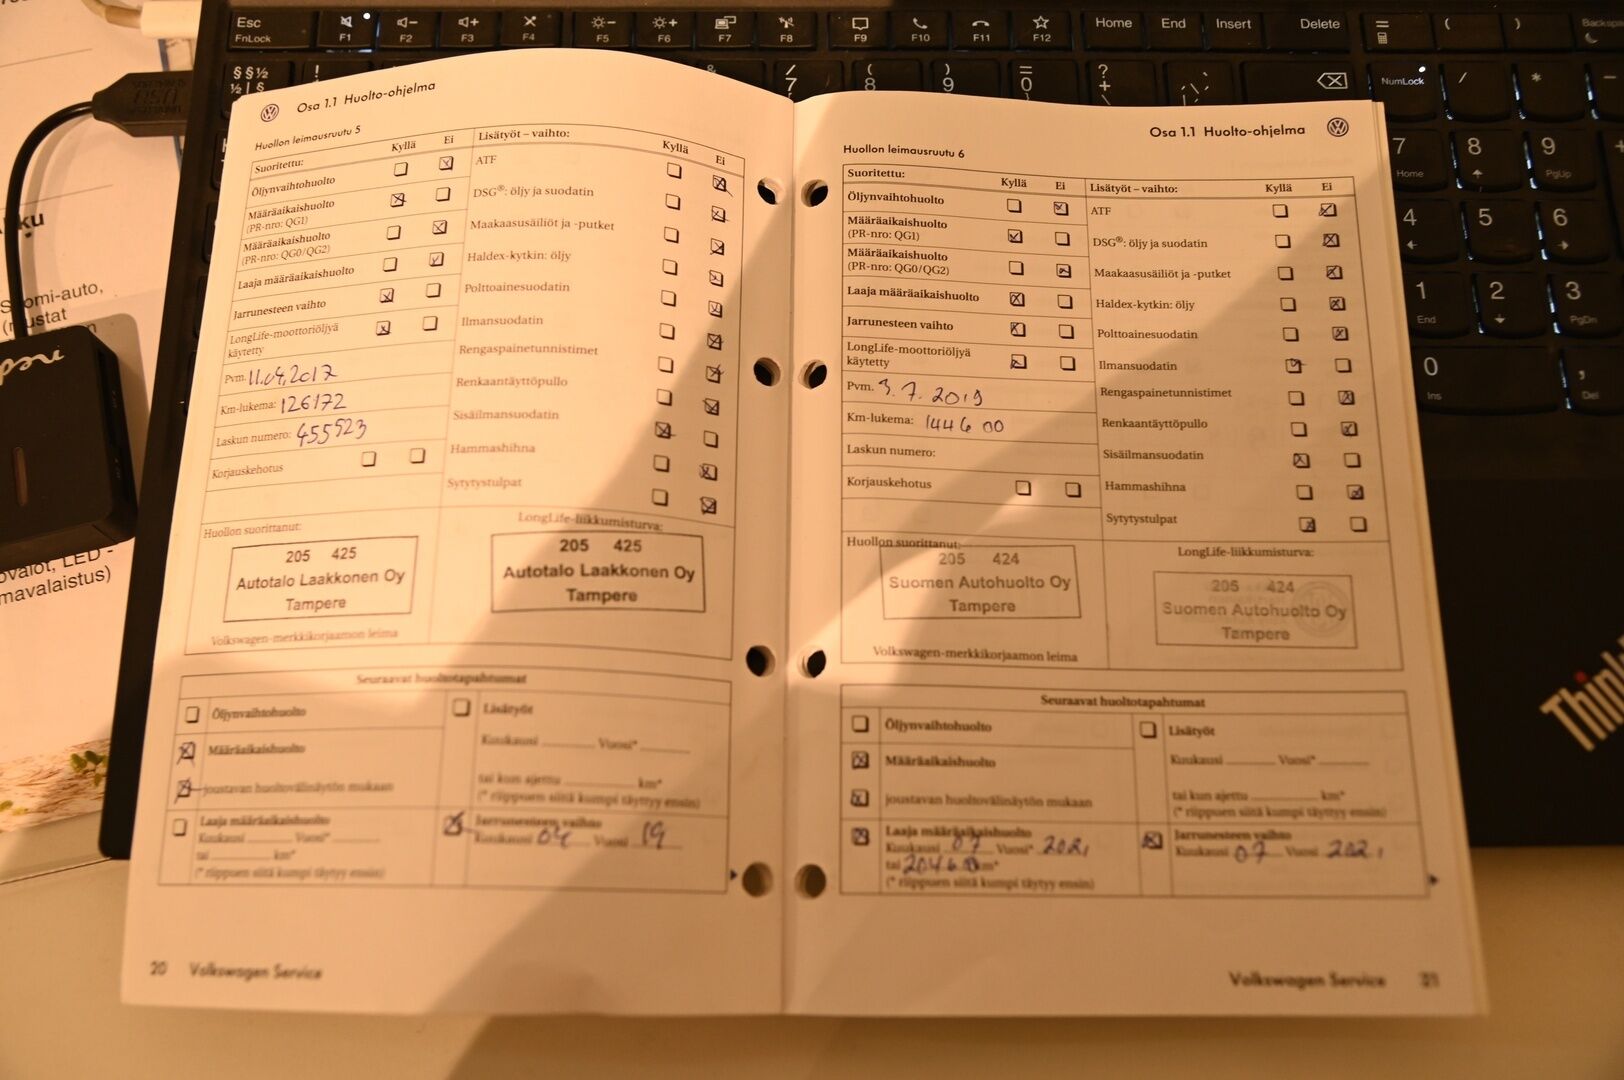 Esc
FnLock
F1
F2
F3
F4
F5
F6
F7
F8
F9
F10
F11
F12
Home
End
Insert
Delete
NumLock
Osa 1.1 Huolto-ohjelma
Huollon leimausruutu 5
Suoritettu: Kyllä Ei
Öljynvaihtohuolto
Määräaikaishuolto
(PR-nro: QG1)
Määräaikaishuolto
(PR-nro: QG0/QG2)
Laaja määräaikaishuolto
Jarrunesteen vaihto
LongLife-moottoriöljyä
käytetty
Pvm. 11.04.2017
Km-lukema: 126172
Laskun numero: 455523
Korjauskehotus
Lisätyöt – vaihto: Kyllä Ei
ATF
DSG®: öljy ja suodatin
Maakaasusäiliöt ja -putket
Haldex-kytkin: öljy
Polttoainesuodatin
Ilmansuodatin
Rengaspainetunnistimet
Renkaantäyttöpullo
Sisäilmansuodatin
Hammashihna
Sytytystulpat
Huollon suorittanut:
205 425
Autotalo Laakkonen Oy
Tampere
Volkswagen-merkkikorjaamon leima
LongLife-liikkumisturva:
205 425
Autotalo Laakkonen Oy
Tampere
Seuraavat huoltotapahtumat
Öljynvaihtohuolto
Määräaikaishuolto
joustavan huoltovälinäytön mukaan
Laaja määräaikaishuolto
Kuukausi Vuosi*
tai km*
(* riippuen siitä kumpi täyttyy ensin)
Lisätyöt
Kuukausi Vuosi*
tai kun ajettu km*
(* riippuen siitä kumpi täyttyy ensin)
Jarrunesteen vaihto
Kuukausi 04 Vuosi 19
20 Volkswagen Service
Osa 1.1 Huolto-ohjelma
Huollon leimausruutu 6
Suoritettu: Kyllä Ei
Öljynvaihtohuolto
Määräaikaishuolto
(PR-nro: QG1)
Määräaikaishuolto
(PR-nro: QG0/QG2)
Laaja määräaikaishuolto
Jarrunesteen vaihto
LongLife-moottoriöljyä
käytetty
Pvm. 3.7.2019
Km-lukema: 144600
Laskun numero:
Korjauskehotus
Lisätyöt – vaihto: Kyllä Ei
ATF
DSG®: öljy ja suodatin
Maakaasusäiliöt ja -putket
Haldex-kytkin: öljy
Polttoainesuodatin
Ilmansuodatin
Rengaspainetunnistimet
Renkaantäyttöpullo
Sisäilmansuodatin
Hammashihna
Sytytystulpat
Huollon suorittanut:
205 424
Suomen Autohuolto Oy
Tampere
Volkswagen-merkkikorjaamon leima
LongLife-liikkumisturva:
205 424
Suomen Autohuolto Oy
Tampere
Seuraavat huoltotapahtumat
Öljynvaihtohuolto
Määräaikaishuolto
joustavan huoltovälinäytön mukaan
Laaja määräaikaishuolto
Kuukausi 07 Vuosi* 2021
tai 204600 km*
(* riippuen siitä kumpi täyttyy ensin)
Lisätyöt
Kuukausi Vuosi*
tai kun ajettu km*
(* riippuen siitä kumpi täyttyy ensin)
Jarrunesteen vaihto
Kuukausi 07 Vuosi 2021
Volkswagen Service 21
7 Home
8
9 PgUp
4
5
6
1 End
2
3 PgDn
0 Ins
, Del